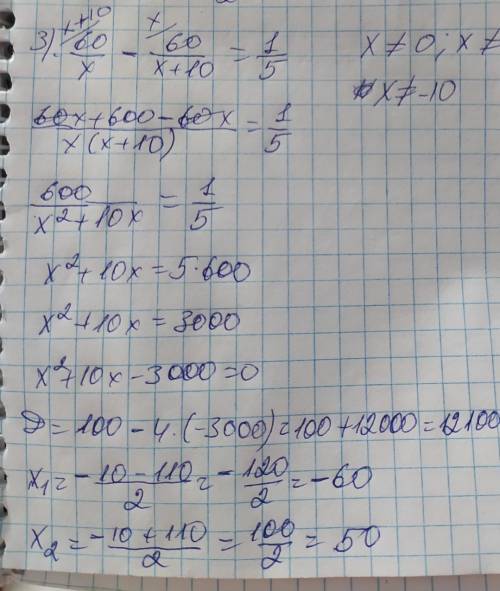 x+10 x
3). 60/x - 60/(x+10) = 1/5 x ≠ 0; x ≠
x ≠ -10
(60x + 600 - 60x)/(x(x+10)) = 1/5
600/(x² + 10x) = 1/5
x² + 10x = 5·600
x² + 10x = 3000
x² + 10x - 3000 = 0
D = 100 - 4·(-3000) = 100 + 12000 = 12100
x₁ = (-10 - 110)/2 = -120/2 = -60
x₂ = (-10 + 110)/2 = 100/2 = 50